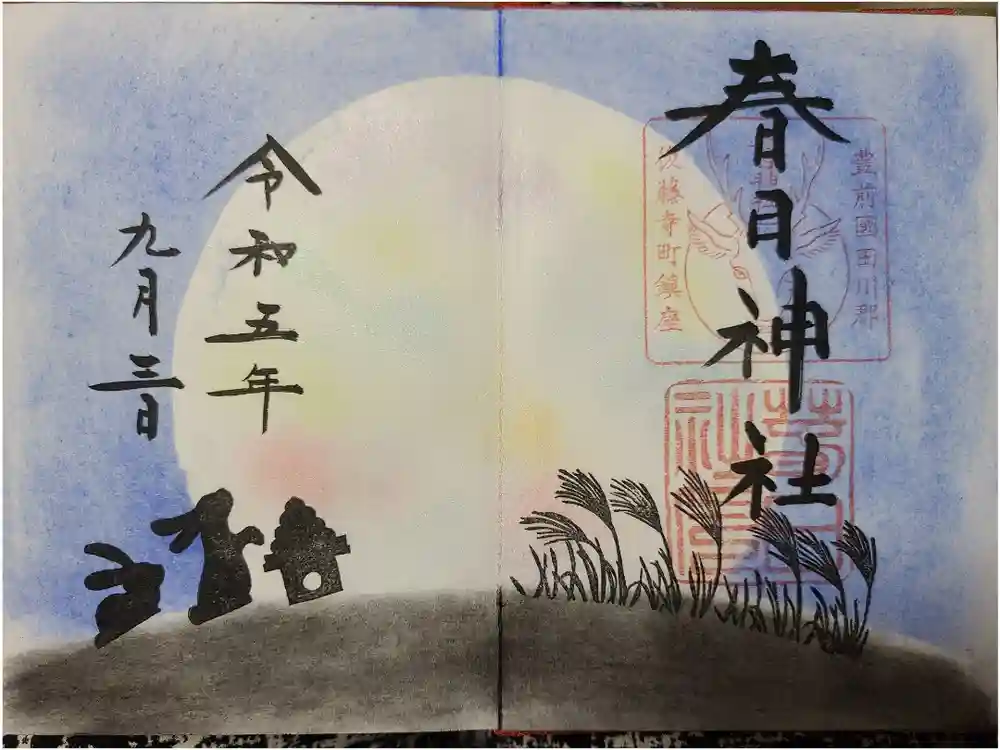 春日神社
豊前國田川郡
後藤寺町鎮座
令和五年
九月三日